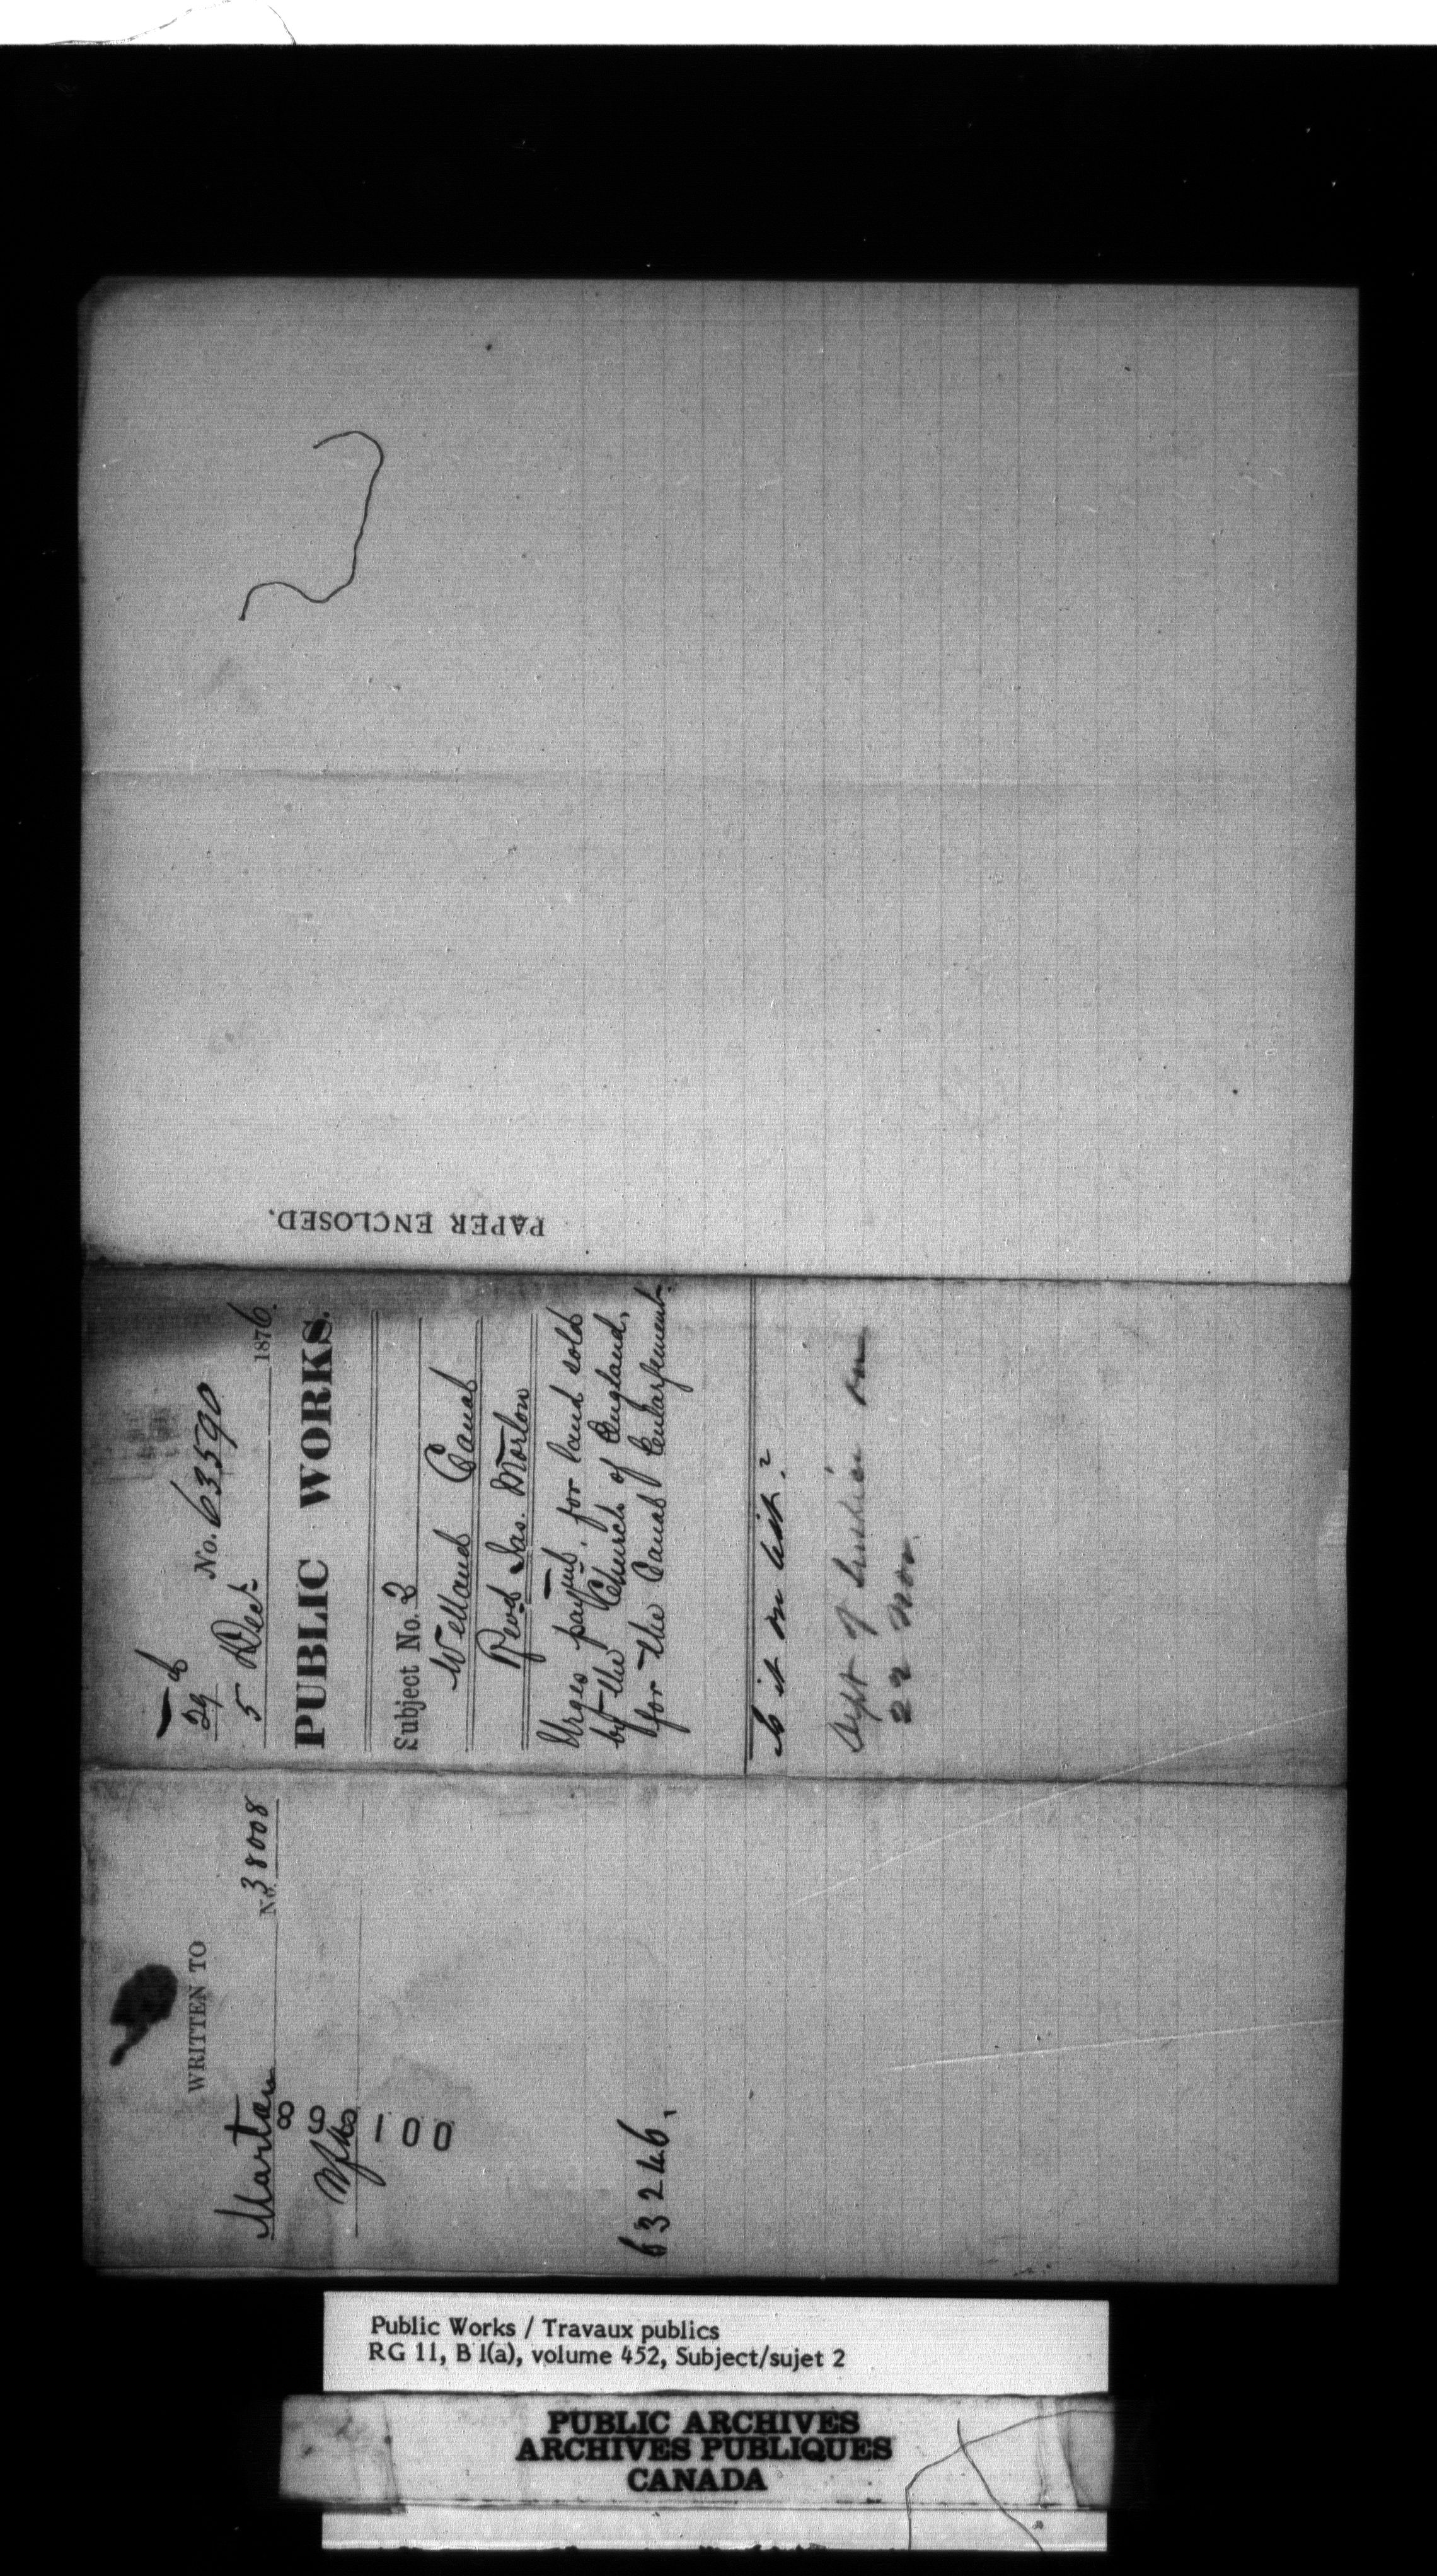 PAPER ENCLOSED.
29
No. 63590
5 Dec. 1876.
PUBLIC WORKS.
Subject No. 2
Welland Canal
Revd Jas. Morton
Urges paymt. for land sold
by the Church of England,
for the Canal Enlargement.
Is it on list?
Dept of Justice on
22 Nov.
WRITTEN TO
No. 38008
89100
63246.
Public Works / Travaux publics
RG 11, B 1(a), volume 452, Subject/sujet 2
PUBLIC ARCHIVES
ARCHIVES PUBLIQUES
CANADA